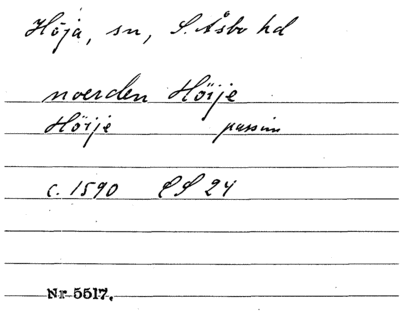 Höja, sn, S. Åsbo hd
noerden Höije
Höije passim
c. 1590 LS 24
Nr 5517.